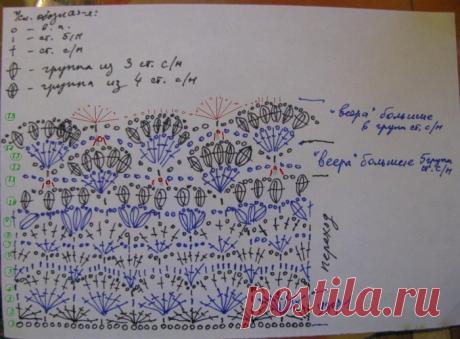 Усл. обознач-я:
о - в. п.
ı - ст. б/н
† - ст. с/н
- группа из 3 ст. с/н
- группа из 4 ст. с/н
"веера" большие
в групп ст. с/н
"веера" большие
ст. с/н
переход
15
14
13
12
11
10
9
8
7
6
5
4
3
2
1
postila.ru